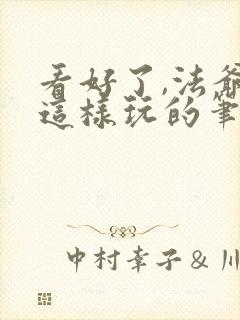 看好了,法爺
這樣玩的筆
中村幸子 & 川